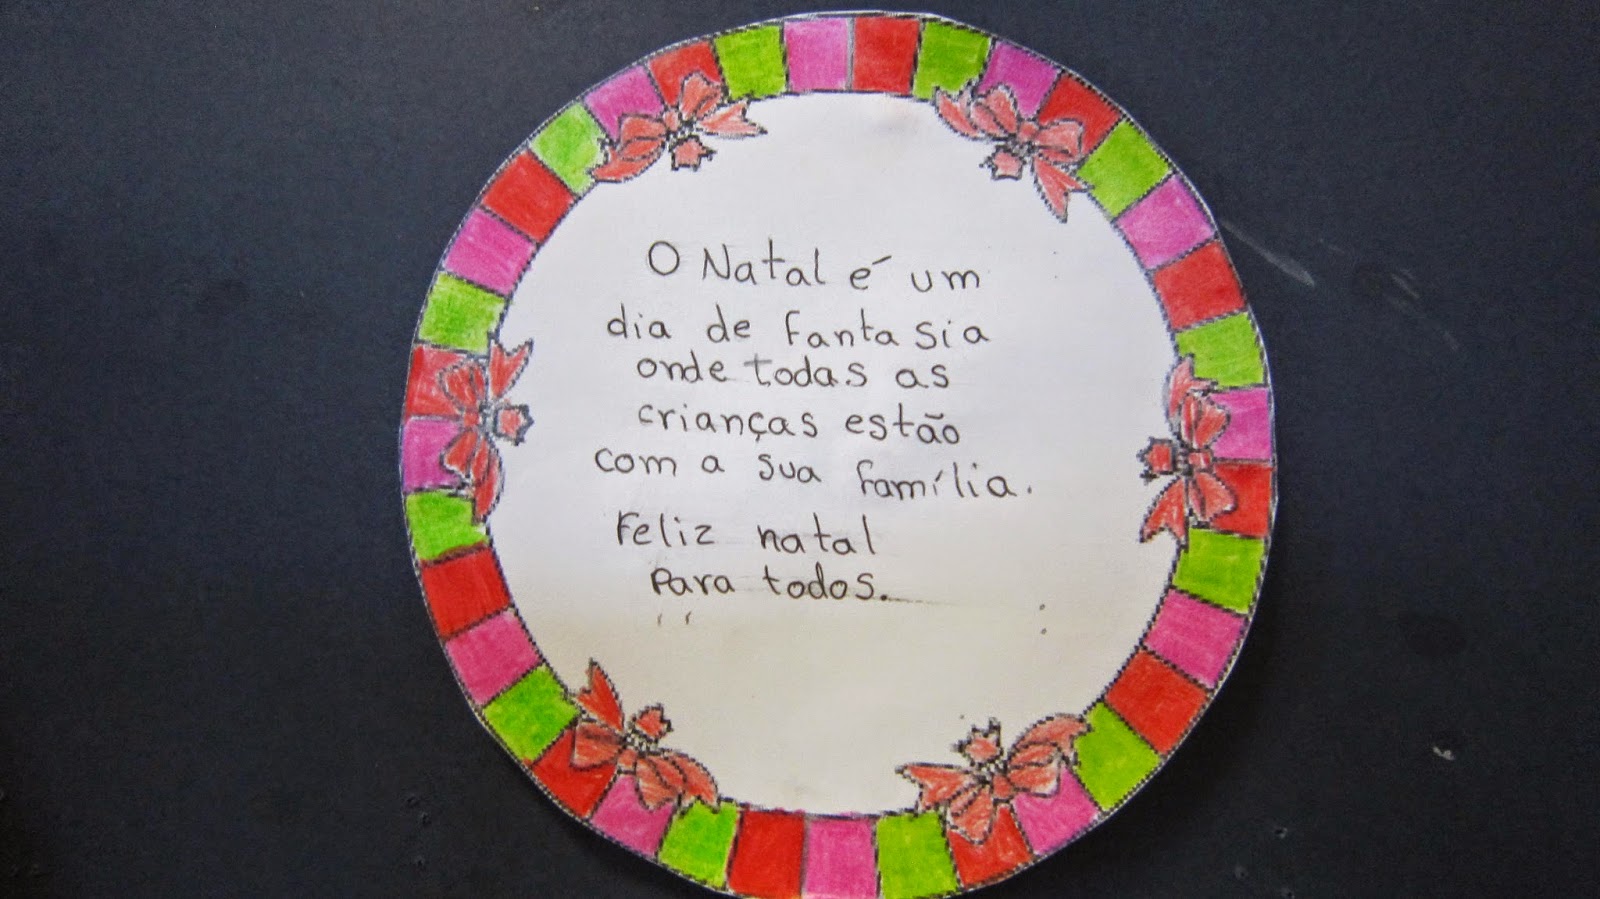 O Natal é um
dia de fantasia
onde todas as
crianças estão
com a sua família.
Feliz natal
Para todos.